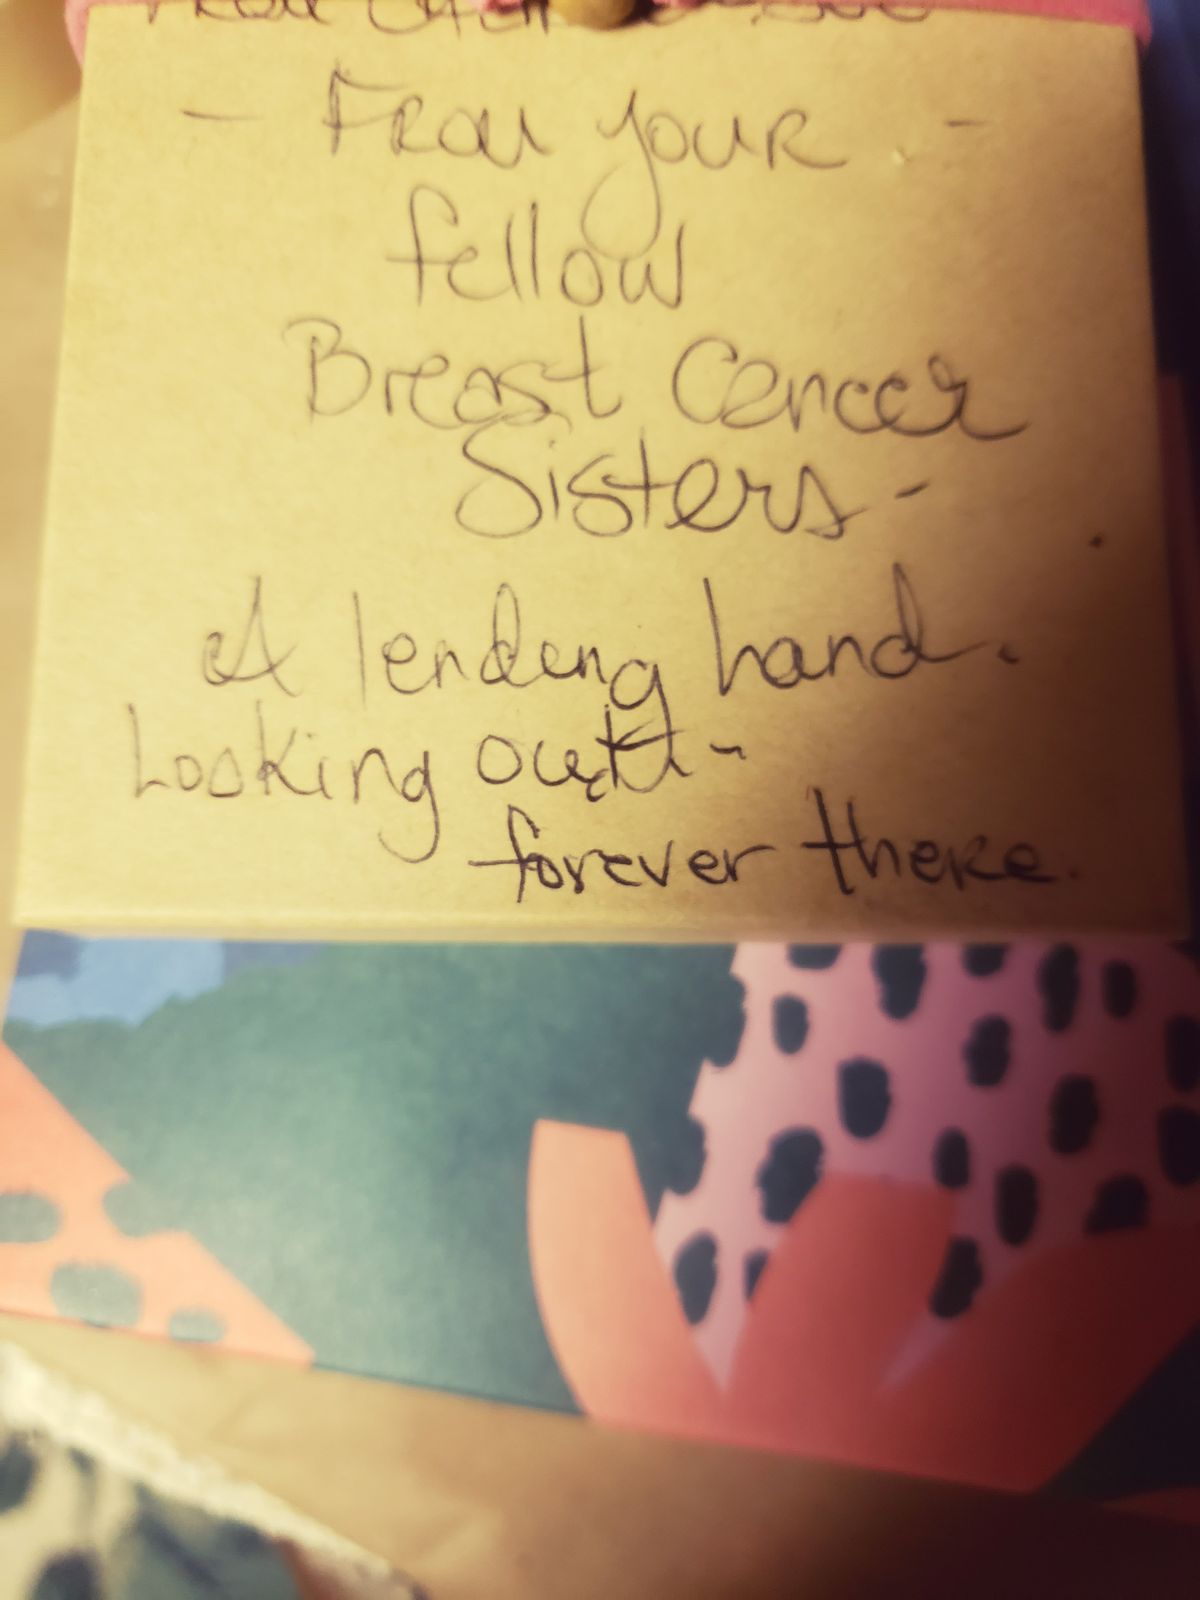 - From your -
fellow
Breast Cancer
Sisters -
A lending hand.
Looking out -
forever there.